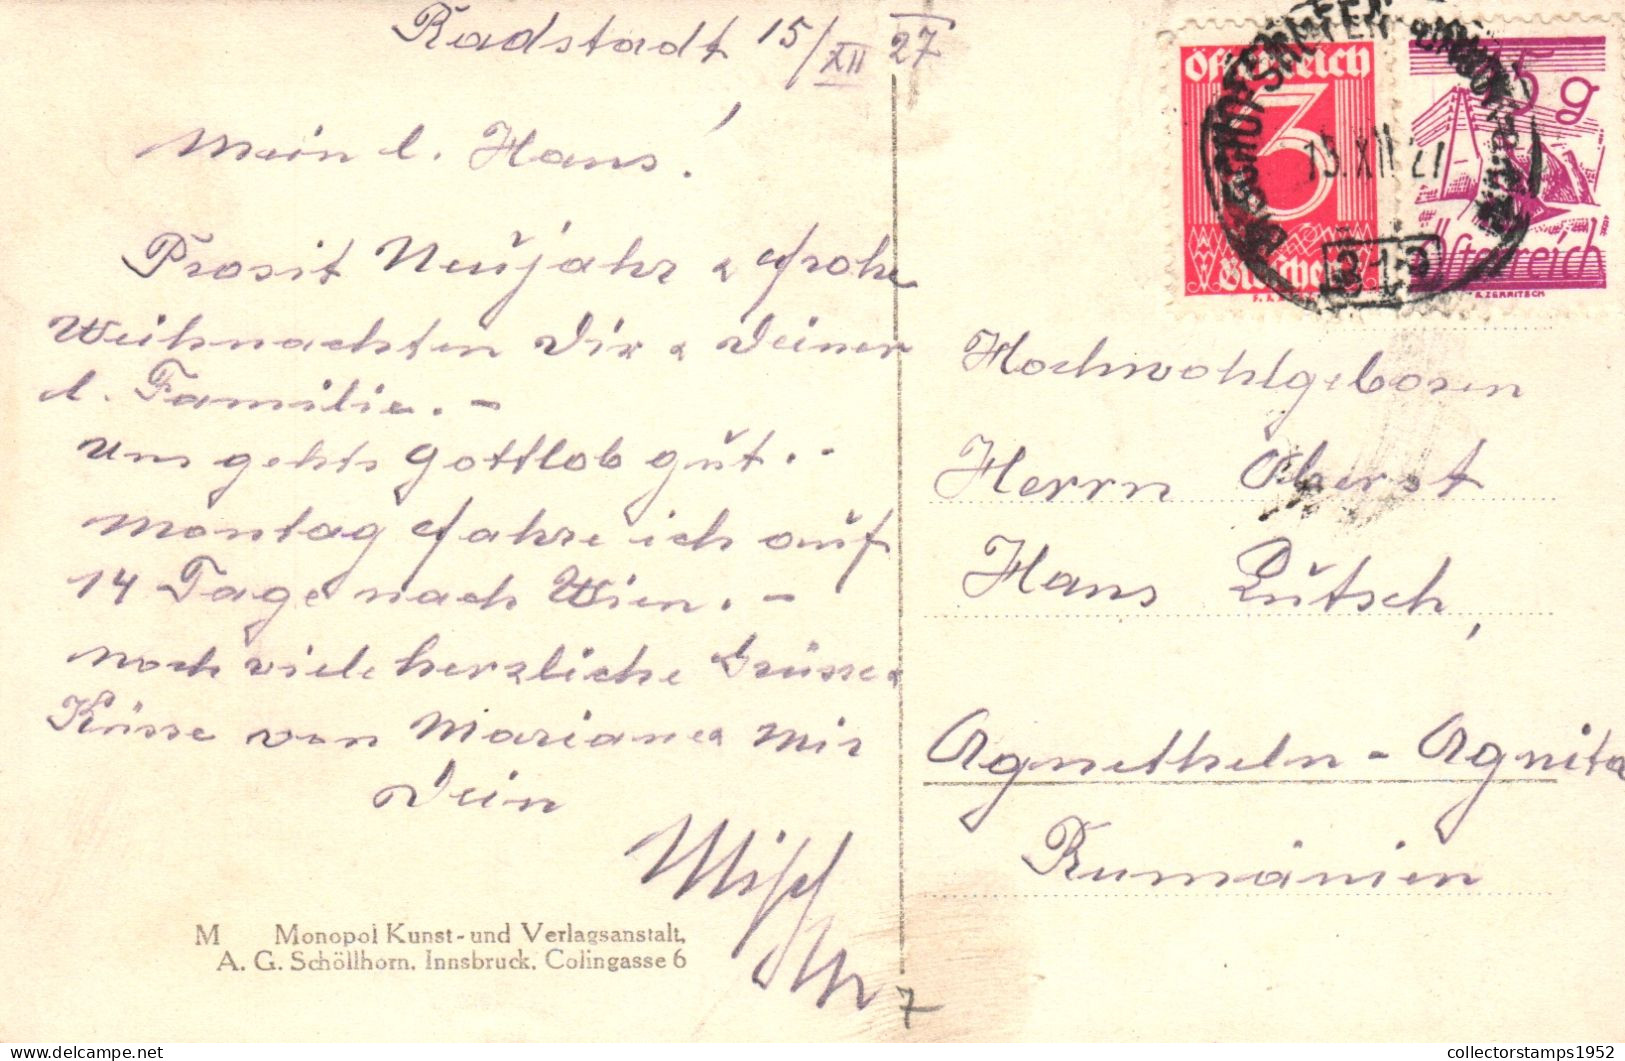 Radstadt 15/XII 27
Mein l. Hans!
Prosit Neujahr & frohe
Weihnachten Dir & Deiner
l. Familie. -
Uns gehts Gottlob gut. -
Montag fahre ich auf
14 Tage nach Wien. -
Noch viele herzliche Grüsse &
Küsse von Mariane & mir
Dein
Misch
M Monopol Kunst- und Verlagsanstalt,
A. G. Schöllhorn, Innsbruck, Colingasse 6
7
Österreich
3
Groschen
5 g
Österreich
R. ZERRITSCH
BISCHOFSHOFEN
15.XII 27
Hochwohlgeboren
Herrn Oberst
Hans Lutsch,
Agnetheln - Agnita
Rumänien
collectorstamps1952